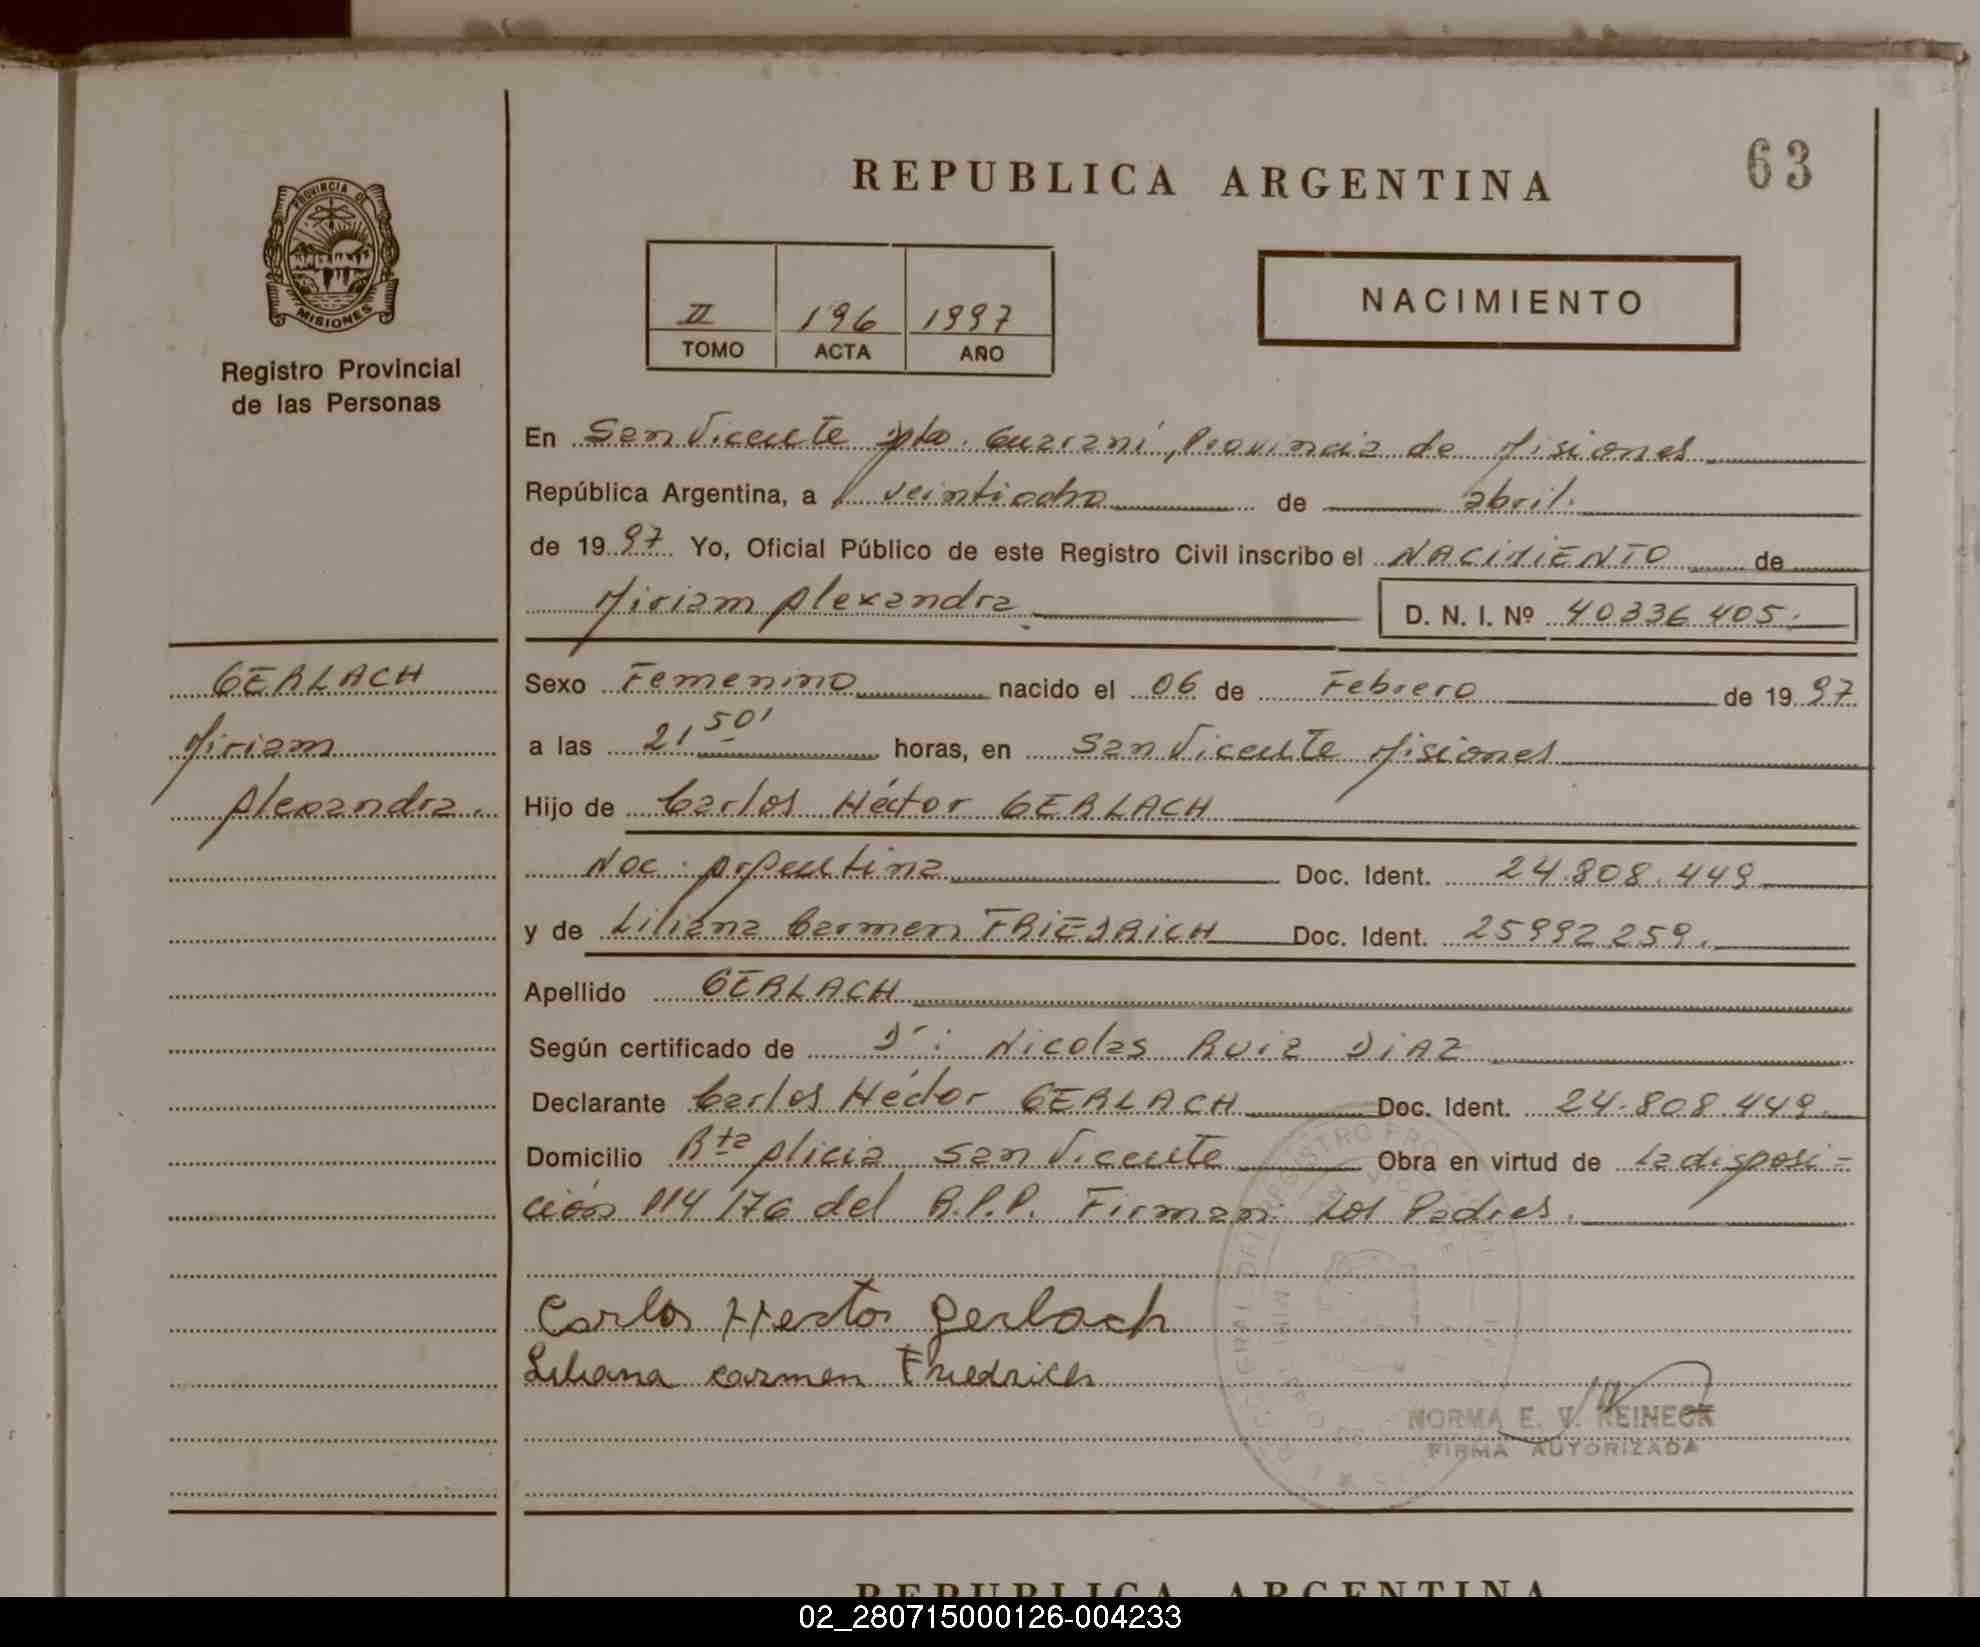 REPUBLICA ARGENTINA
63
PROVINCIA DE
MISIONES
Registro Provincial
de las Personas
II 196 1997
TOMO ACTA AÑO
NACIMIENTO
En San Vicente Dpto. Guaraní, Provincia de Misiones
República Argentina, a veintiocho de abril.
de 1997 Yo, Oficial Público de este Registro Civil inscribo el NACIMIENTO de
Miriam Alexandra D. N. I. Nº 40336 405.
GERLACH
Miriam
Alexandra.
Sexo Femenino nacido el 06 de Febrero de 1997
a las 21 50' horas, en San Vicente Misiones
Hijo de Carlos Héctor GERLACH
Nac. Argentina Doc. Ident. 24.808.449
y de Liliana Carmen FRIEDRICH Doc. Ident. 25992259.
Apellido GERLACH
Según certificado de Dr: Nicolas RUIZ DIAZ
Declarante Carlos Héctor GERLACH Doc. Ident. 24.808.449
Domicilio Rta Alicia San Vicente Obra en virtud de La disposi=
ción 114/76 del R.P.P. Firman: Los Padres.
Carlos Hector Gerlach
Liliana carmen Friedrich
NORMA E. V. REINECK
FIRMA AUTORIZADA
REPUBLICA ARGENTINA
02_280715000126-004233